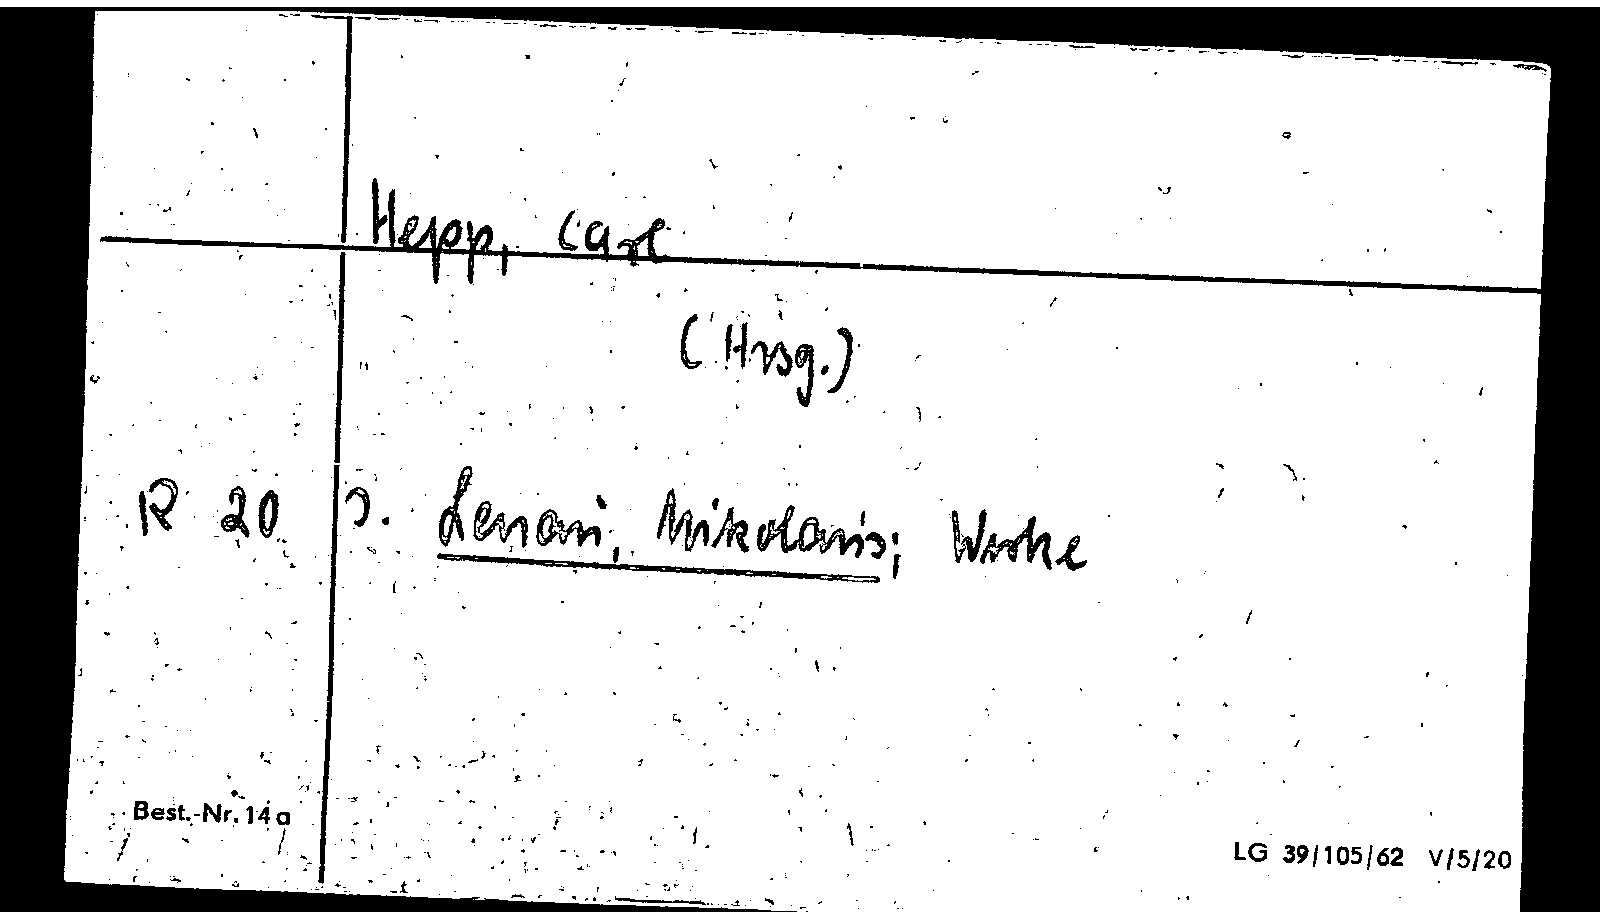 Hepp, Carl
(Hrsg.)
R 20 s. Lenau, Nikolaus; Werke
Best.-Nr. 14a
LG 39/105/62 V/5/20